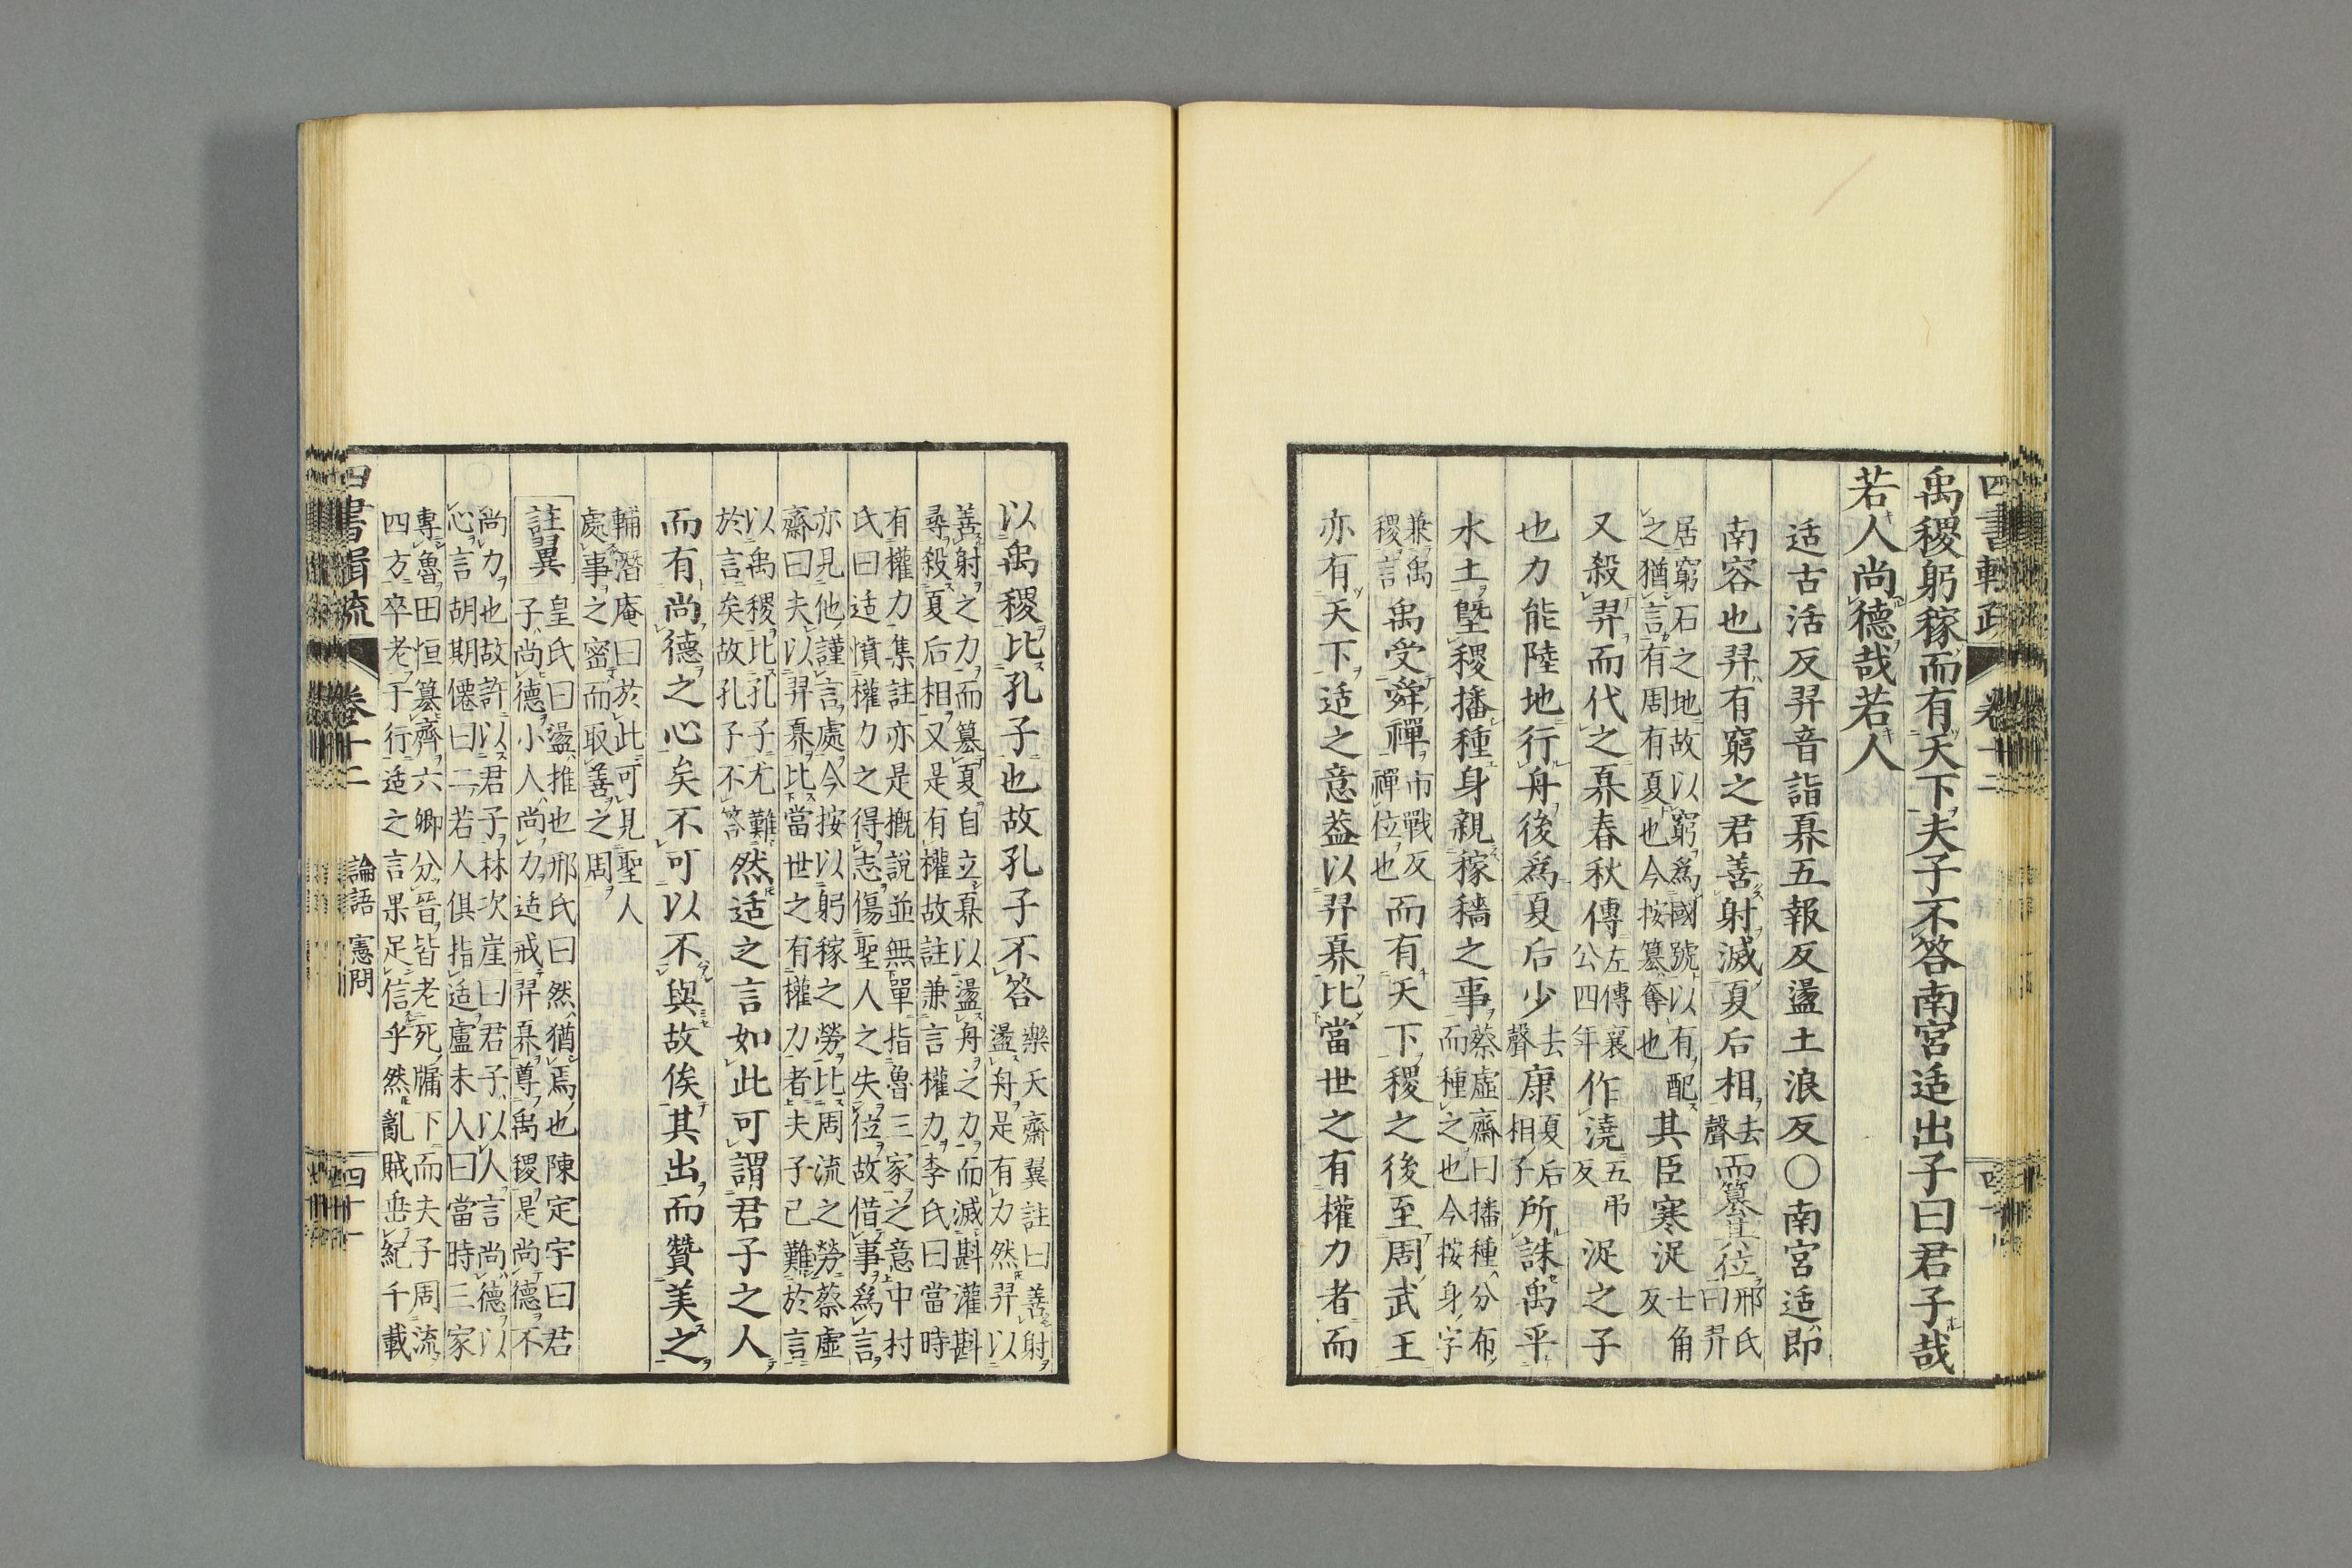 禹稷躬稼而有天下夫子不答南宮适出子曰君子哉
若人尚德哉若人
适古活反羿音詣奡五報反盪土浪反○南宮适即
南容也羿有窮之君善射滅夏后相去聲而篡其位邢氏曰羿
居窮石之地故以窮爲國號以有配之猶言有周有夏也今按篡奪也其臣寒浞士角反
又殺羿而代之奡春秋傳左傳襄公四年作澆五吊反浞之子
也力能陸地行舟後爲夏后少去聲康夏后相子所誅禹平
水土曁稷播種身親稼穡之事蔡虛齋曰播種分布而種之也今按身字
兼禹稷言禹受舜禪市戰反禪位也而有天下稷之後至周武王
亦有天下适之意蓋以羿奡比當世之有權力者而
以禹稷比孔子也故孔子不答樂天齋翼註曰善射盪舟是有力然羿以
善射之力而篡夏自立奡以盪舟之力而滅斟灌斟
尋殺夏后相又是有權故註兼言權力李氏曰當時
有權力集註亦是概說並無單指魯三家之意中村
氏曰适憤權力之得志傷聖人之失位故借事爲言
亦見他謹言處今按以躬稼之勞比周流之勞蔡虛
齋曰夫以羿奡比當世之有權力者夫子已難於言
以禹稷比孔子尤難於言矣故孔子不答然适之言如此可謂君子之人
而有尚德之心矣不可以不與故俟其出而贊美之
輔潛庵曰於此可見聖人
處事之密而取善之周
註翼 皇氏曰盪推也邢氏曰然猶焉也陳定宇曰君
子尚德小人尚力适戒羿奡尊禹稷是尚德不
尚力也故許以君子林次崖曰君子以人言尚德以
心言胡期僊曰二若人俱指适盧未人曰當時三家
專魯田恒篡齊六卿分晉皆老死牖下而夫子周流
四方卒老于行适之言果足信乎然亂賊垂紀千載
四書輯疏 卷十二 論語 憲問 四十一